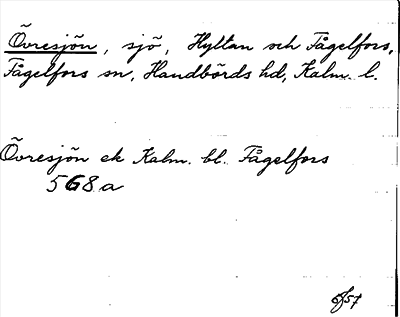 Övresjön, sjö, Hyltan och Fågelfors,
Fågelfors sn, Handbörds hd, Kalm. l.
Övresjön ek Kalm. bl. Fågelfors
568 a